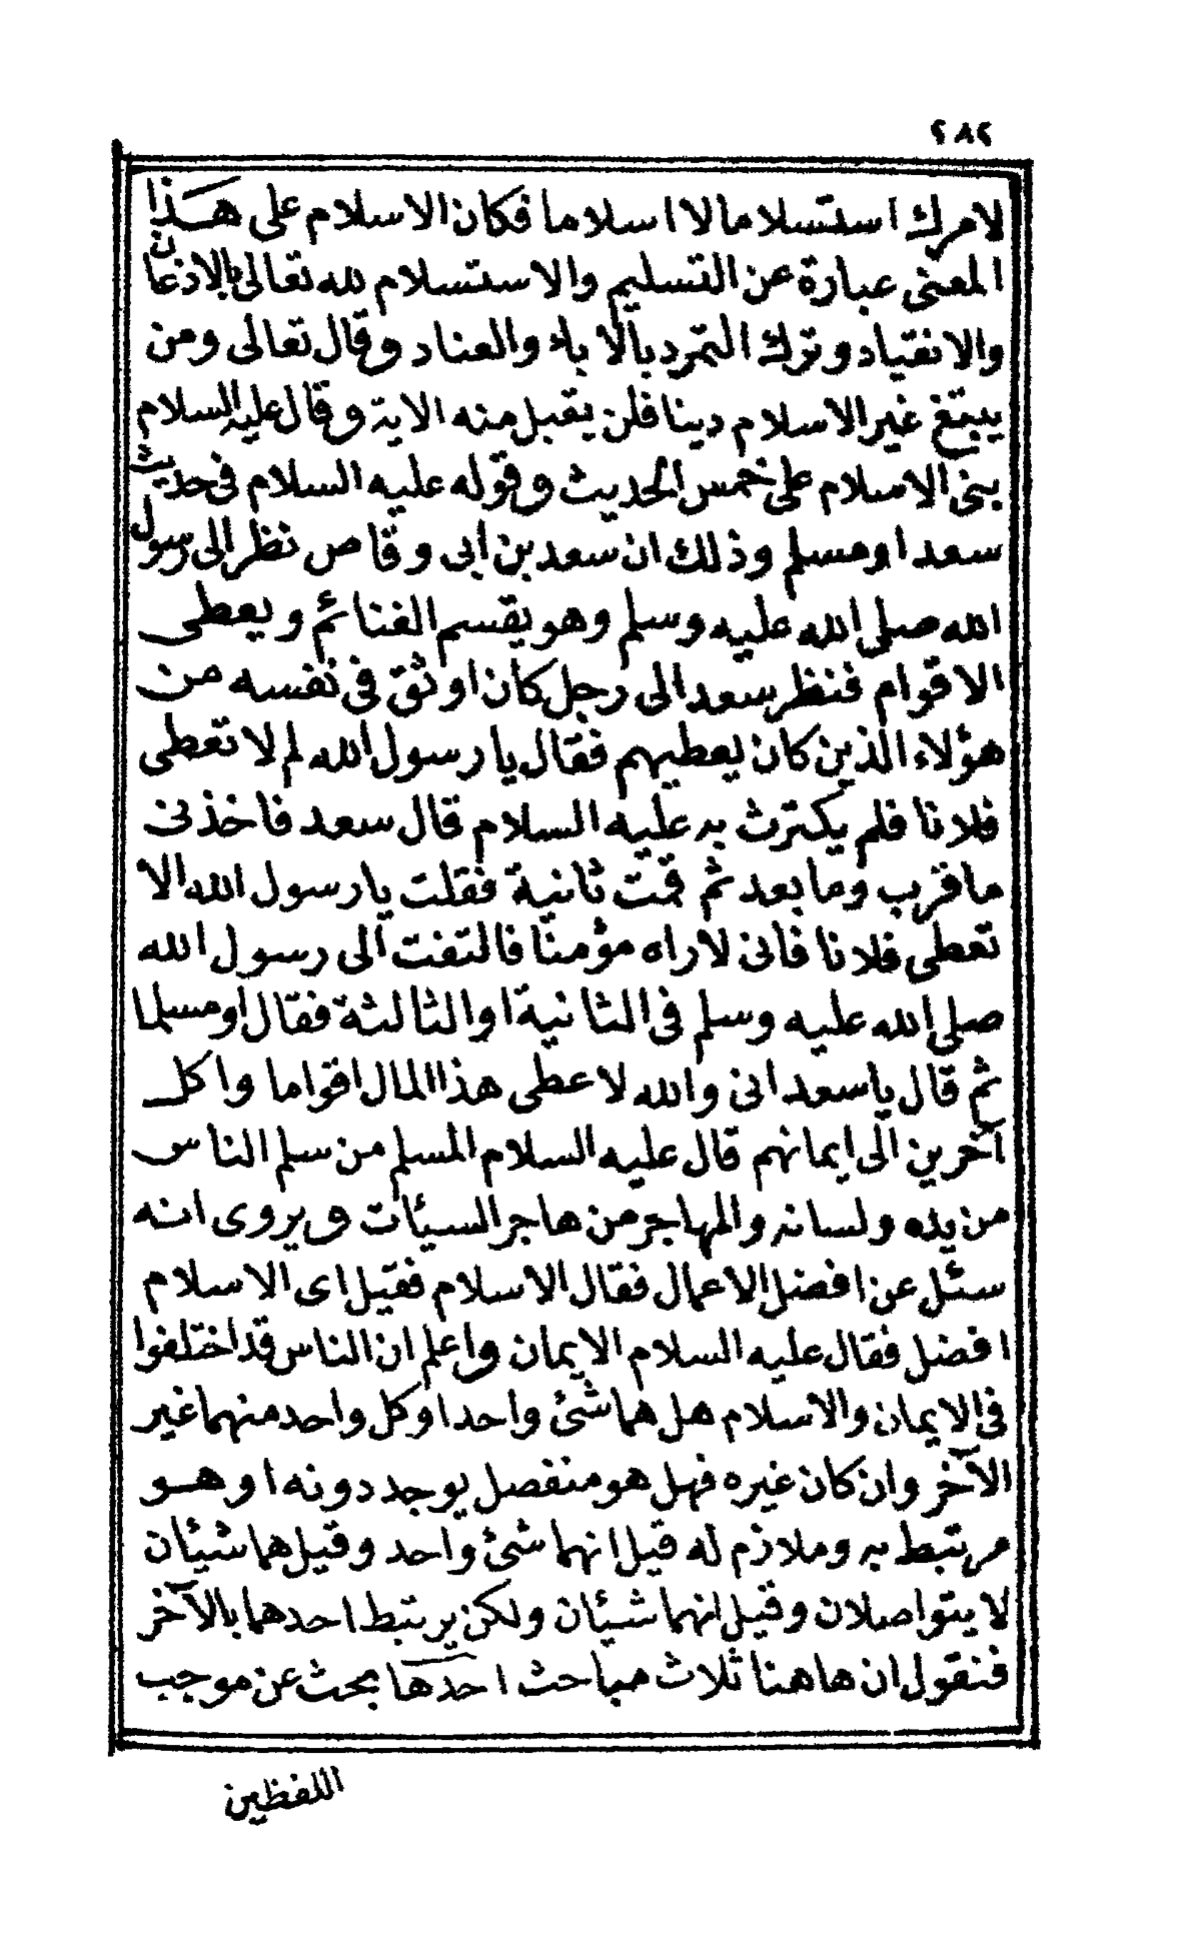 ٢٨٢
لامرك استسلاما لا اسلاما فكان الاسلام على هذا
المعنى عبارة عن التسليم والاستسلام لله تعالى بالاذعان
والانقياد وترك التمرد بالاباء والعناد وقال تعالى ومن
يبتغ غير الاسلام دينا فلن يقبل منه الاية وقال عليه السلام
بنى الاسلام على خمس الحديث وقوله عليه السلام فى حديث
سعد او مسلم وذلك ان سعد بن أبى وقاص نظر الى رسول
الله صلى الله عليه وسلم وهو يقسم الغنائم ويعطى
الاقوام فنظر سعد الى رجل كان اوثق فى نفسه من
هؤلاء الذين كان يعطيهم فقال يا رسول الله لم لا تعطى
فلانا فلم يكترث به عليه السلام قال سعد فاخذنى
ما قرب وما بعد ثم قمت ثانية فقلت يا رسول الله الا
تعطى فلانا فانى لاراه مؤمنا فالتفت الى رسول الله
صلى الله عليه وسلم فى الثانية او الثالثة فقال او مسلما
ثم قال يا سعد انى والله لاعطى هذا المال اقواما واكل
آخرين الى ايمانهم قال عليه السلام المسلم من سلم الناس
من يده ولسانه والمهاجر من هاجر السيئات ويروى انه
سئل عن افضل الاعمال فقال الاسلام فقيل اى الاسلام
افضل فقال عليه السلام الايمان واعلم ان الناس قد اختلفوا
فى الايمان والاسلام هل هما شئ واحد او كل واحد منهما غير
الآخر وان كان غيره فهل هو منفصل يوجد دونه او هو
مرتبط به وملازم له قيل انهما شئ واحد وقيل هما شيئان
لا يتواصلان وقيل انهما شيئان ولكن يرتبط احدهما بالآخر
فنقول ان هاهنا ثلاث مباحث احدها بحث عن موجب
اللفظين